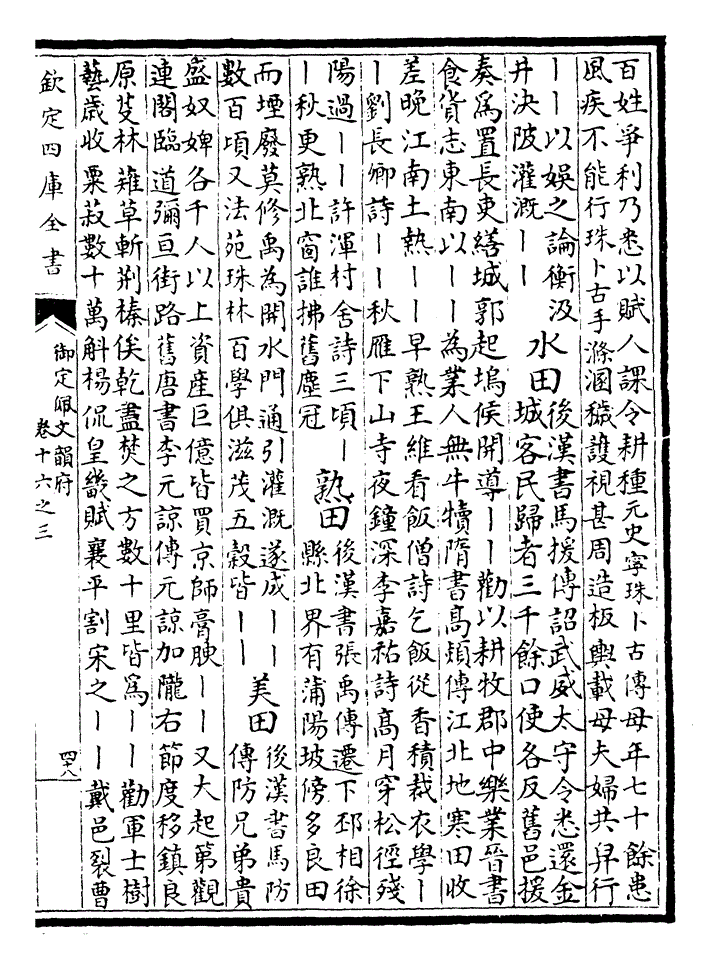 百姓爭利乃悉以賦人課令耕種元史寧珠卜古傳母年七十餘患
風疾不能行珠卜古手滌溷穢護視甚周造板輿載母夫婦共舁行
丨丨以娛之論衡汲
井決陂灌溉丨丨
水田
後漢書馬援傳詔武威太守令悉還金
城客民歸者三千餘口使各反舊邑援
奏爲置長吏繕城郭起塢候開導丨丨勸以耕牧郡中樂業晉書
食貨志東南以丨丨為業人無牛犢隋書高熲傳江北地寒田收
差晚江南土熱丨丨早熟王維看飯僧詩乞飯從香積裁衣學丨
丨劉長卿詩丨丨秋雁下山寺夜鐘深李嘉祐詩高月穿松徑殘
陽過丨丨許渾村舍詩三頃丨
丨秋更熟北窗誰拂舊塵冠
熟田
後漢書張禹傳遷下邳相徐
縣北界有蒲陽坡傍多良田
而堙廢莫修禹為開水門通引灌溉遂成丨丨
數百頃又法苑珠林百學俱滋茂五穀皆丨丨
美田
後漢書馬防
傳防兄弟貴
盛奴婢各千人以上資產巨億皆買京師膏腴丨丨又大起第觀
連閣臨道彌亘街路舊唐書李元諒傳元諒加隴右節度移鎮良
原芟林薙草斬荆榛俟乾盡焚之方數十里皆爲丨丨勸軍士樹
藝歲收粟菽數十萬斛楊侃皇畿賦襄平割宋之丨丨戴邑裂曹
欽定四庫全書
御定佩文韻府
卷十六之三
四十八